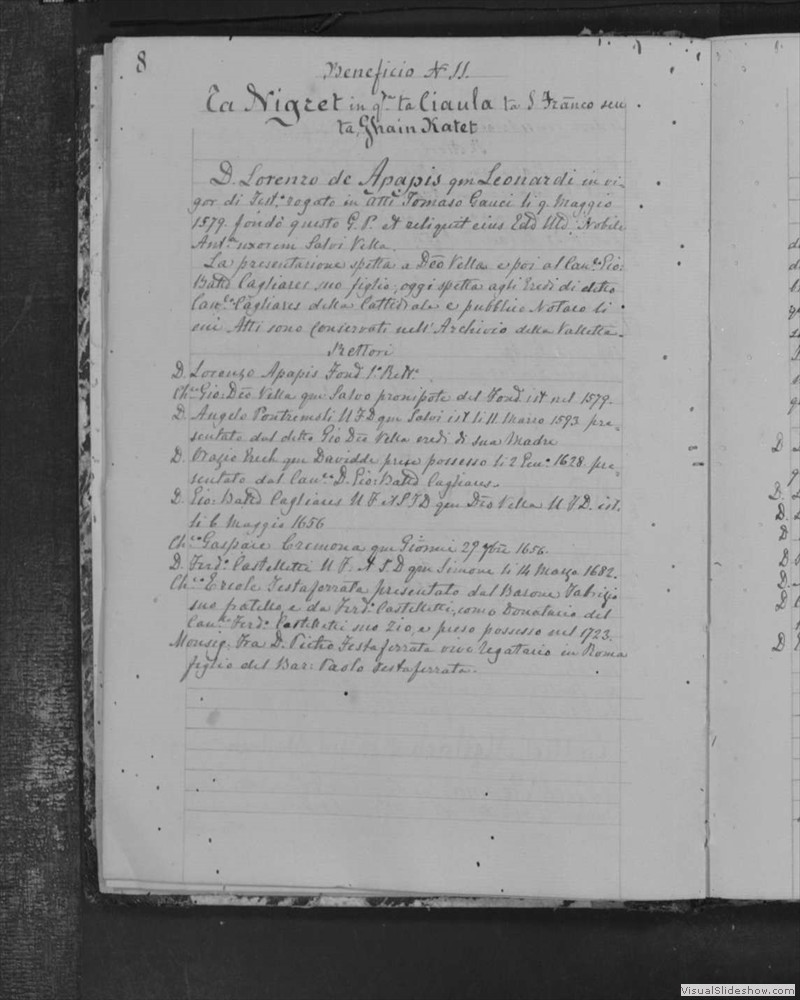 8
Beneficio N 11.
Ta Nigret in qᵗᵃ ta Ciaula ta S Franco seu
ta Ghain Katet
D. Lorenzo de Apapis qm Leonardi in vi-
gor di Testᵒ rogato in atti Tomaso Gauci li 9 Maggio
1579. fondò questo G. P. et reliquit eius Nobile
Antᵃ uxorem Salvi Vella.
La presentazione spetta a Dẽo Vella e poi al Canᶜᵒ Gio:
Battã Cagliares suo figlio, oggi spetta agli Eredi di detto
Canᶜᵒ Cagliares della Cattedrale e pubblico Notaro li
cui Atti sono conservati nell' Archivio della Valletta.
Rettori
D. Lorenzo Apapis Fondᵉ 1ᵒ Rettᵉ
Chᶜᵒ Gio: Dẽo Vella qm Salvo pronipote del Fondᵉ ist nel 1579.
D. Angelo Pontremoli U J D qm Salvi ist li 11 Marzo 1593 pre-
sentato dal detto Gio Dẽo Vella eredi di sua Madre
D. Orazio Erech qm Davidde prese possesso li 2 Genᵒ 1628 pre-
sentato dal Canᶜᵒ D. Gio: Battã Cagliares.
D. Gio: Battã Cagliares U J et S T D qm Dẽo Vella U J D. ist.
li 6 Maggio 1656
Chᶜᵒ Gaspare Cremona qm Gionni 29 9bre 1656.
D. Ferdᵒ Castelletti U J. et S D qm Simone li 14 Marzo 1682.
Chᶜᵒ Ercole Testaferrata presentato dal Barone Fabrizio
suo fratello, e da Ferdᵒ Castelletti, como donatario del
Canᶜᵒ Ferdᵒ Castelletti suo zio, e prese possesso nel 1723.
Monsig: Fra D. Pietro Testaferrata vive legatario in Roma
figlio del Bar: Paolo testaferrata.
VisualSlideshow.com